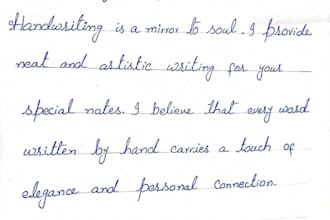 Handwriting is a mirror to soul. I provide
neat and artistic writing for your
special notes. I believe that every word
written by hand carries a touch of
elegance and personal connection.